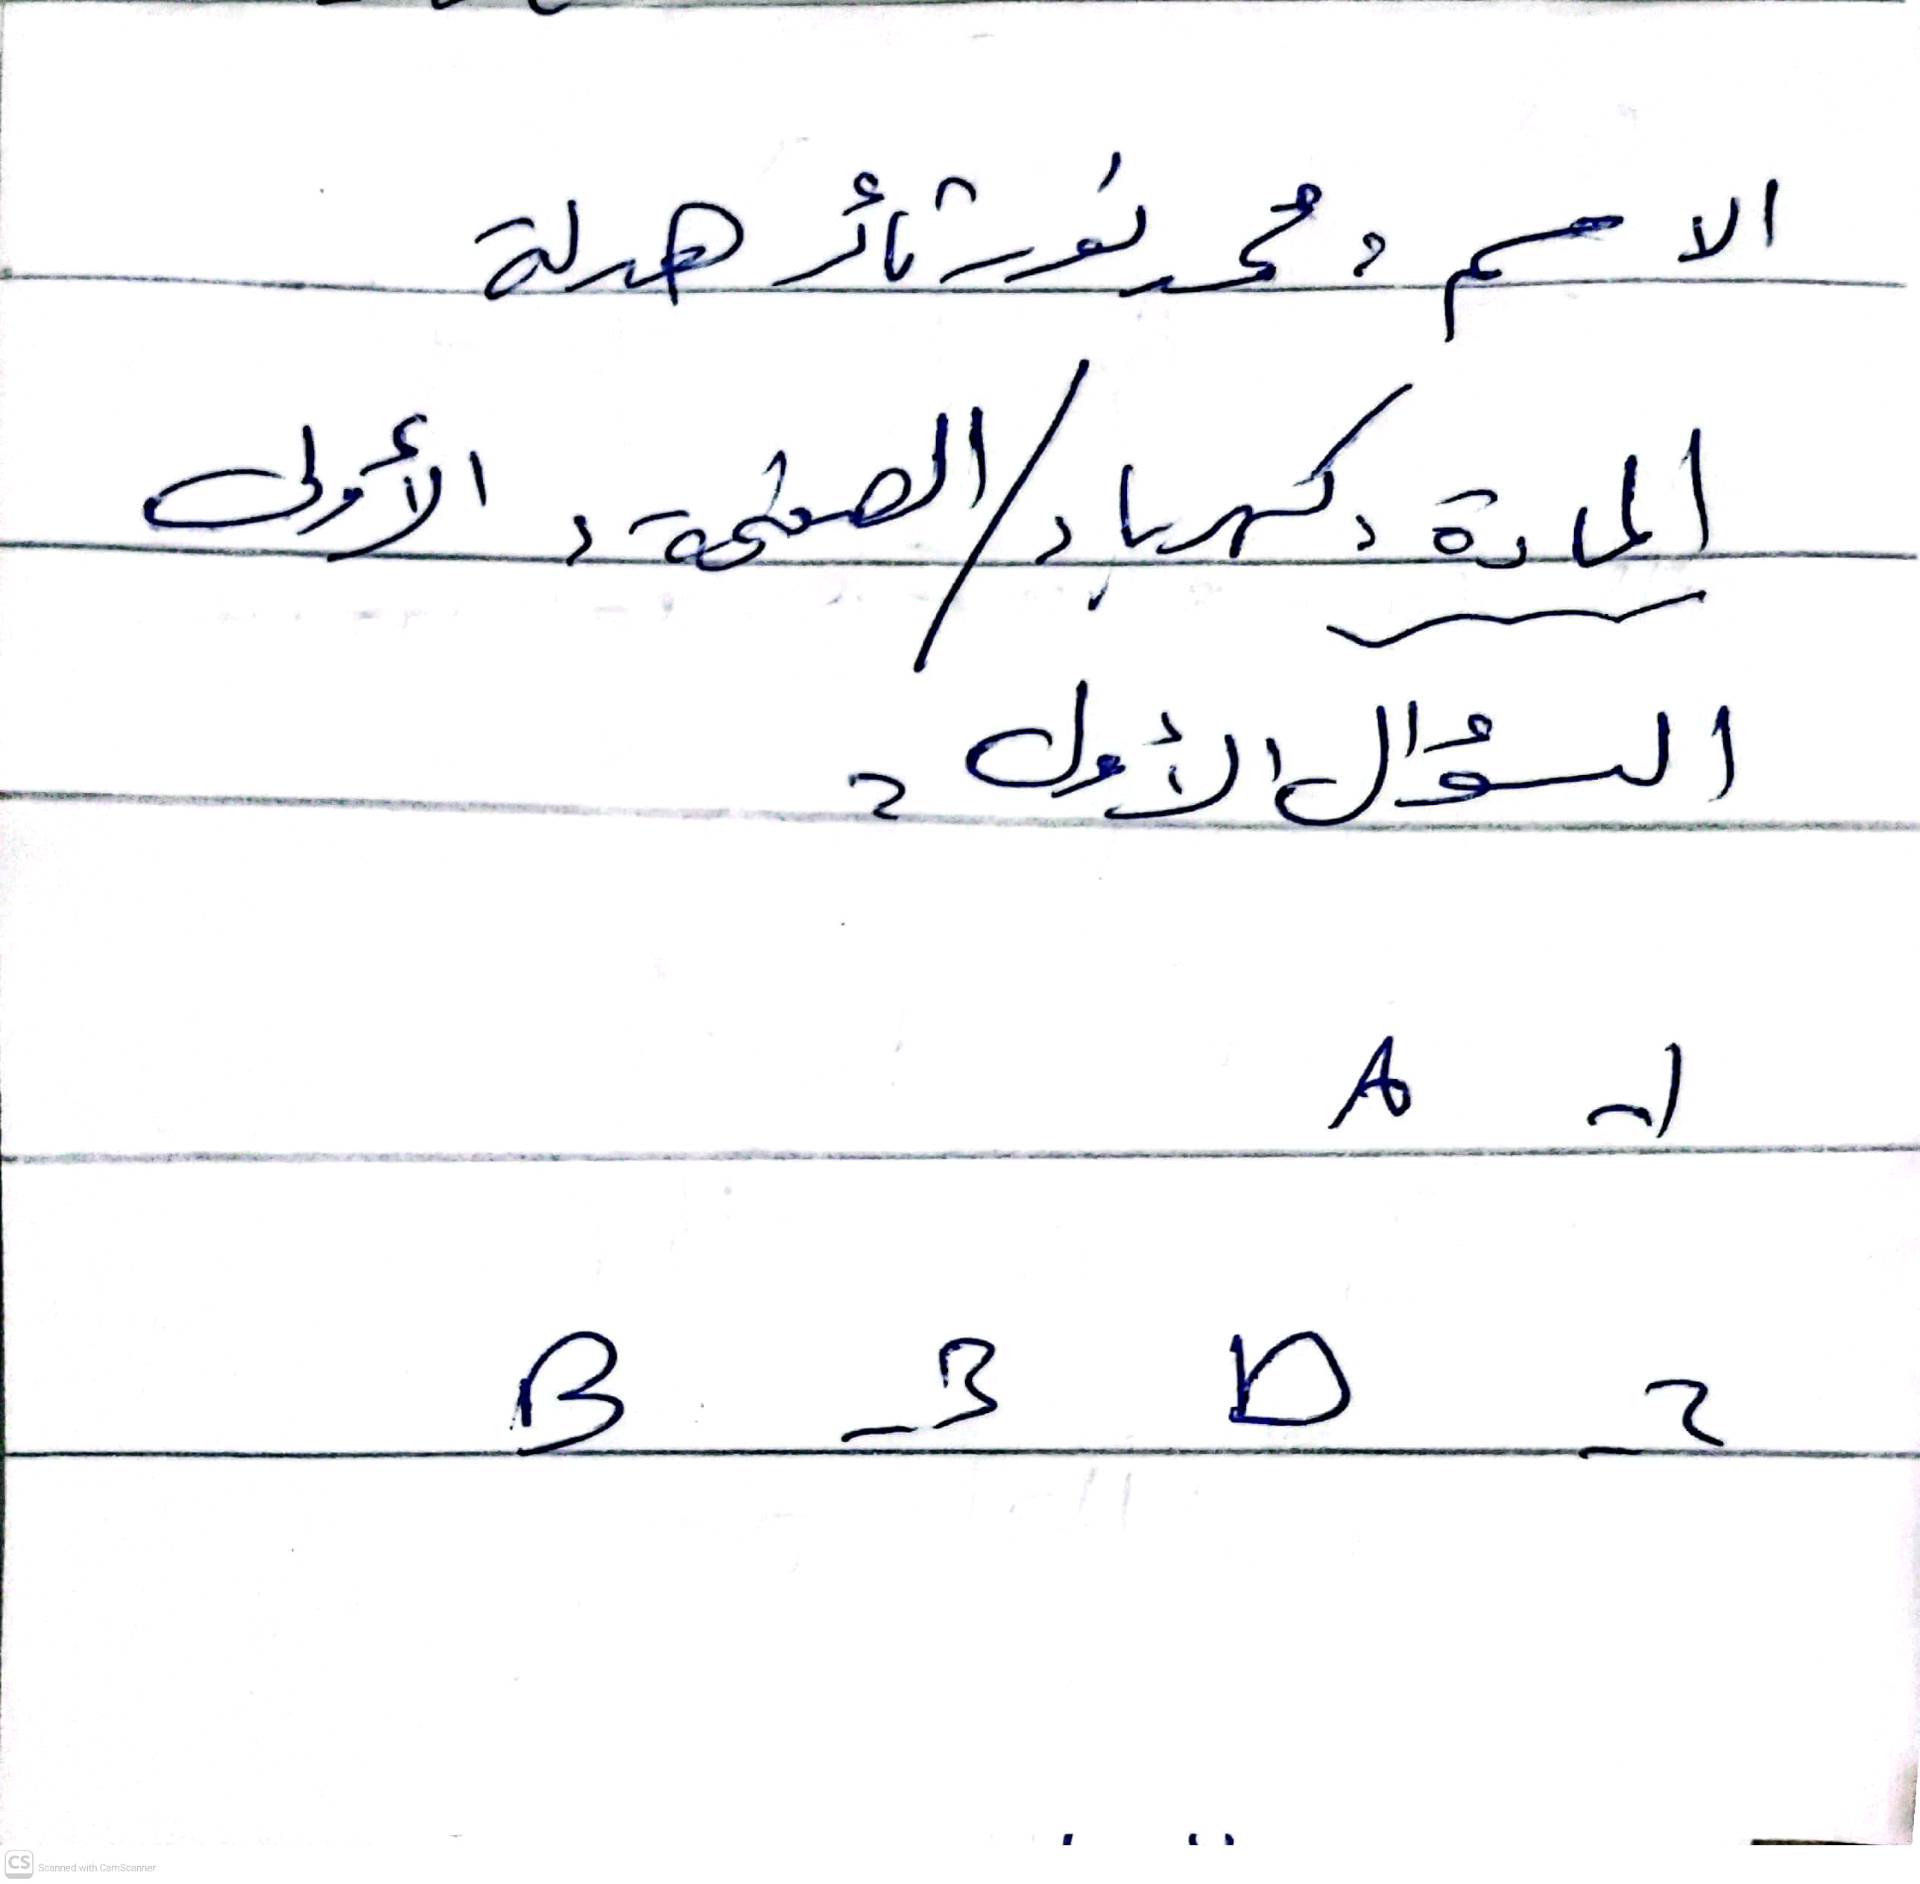 الاسم: محمد نور ثائر هدلة
المادة: كهرباء / الصفحة: الأولى
السؤال الأول:
1- A
2- D 3- B
CS Scanned with CamScanner